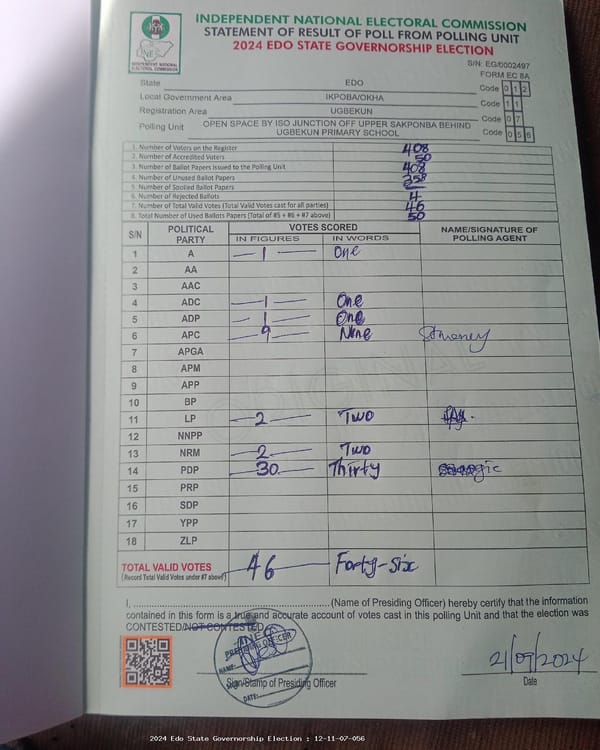 INDEPENDENT NATIONAL ELECTORAL COMMISSION
STATEMENT OF RESULT OF POLL FROM POLLING UNIT
2024 EDO STATE GOVERNORSHIP ELECTION
INEC
INDEPENDENT NATIONAL ELECTORAL COMMISSION
S/N: EG/0002497
FORM EC 8A
State EDO Code 0 1 2
Local Government Area IKPOBA/OKHA Code 1 1
Registration Area UGBEKUN Code 0 7
Polling Unit OPEN SPACE BY ISO JUNCTION OFF UPPER SAKPONBA BEHIND UGBEKUN PRIMARY SCHOOL Code 0 5 6
1. Number of Voters on the Register 408
2. Number of Accredited Voters 50
3. Number of Ballot Papers Issued to the Polling Unit 408
4. Number of Unused Ballot Papers 358
5. Number of Spoiled Ballot Papers
6. Number of Rejected Ballots 4
7. Number of Total Valid Votes (Total Valid Votes cast for all parties) 46
8. Total Number of Used Ballots Papers (Total of #5 + #6 + #7 above) 50
S/N POLITICAL PARTY VOTES SCORED NAME/SIGNATURE OF POLLING AGENT
IN FIGURES IN WORDS
1 A 1 One
2 AA
3 AAC
4 ADC 1 One
5 ADP 1 One
6 APC 9 Nine
7 APGA
8 APM
9 APP
10 BP
11 LP 2 TWO
12 NNPP
13 NRM 2 TWO
14 PDP 30 Thirty
15 PRP
16 SDP
17 YPP
18 ZLP
TOTAL VALID VOTES 46 Forty-Six
(Record Total Valid Votes under #7 above)
I, ............................................. (Name of Presiding Officer) hereby certify that the information
contained in this form is a true and accurate account of votes cast in this polling Unit and that the election was
CONTESTED/NOT CONTESTED.
INEC
PRESIDING OFFICER
NAME:
DATE:
Sign/Stamp of Presiding Officer
21/09/2024
Date
2024 Edo State Governorship Election : 12-11-07-056